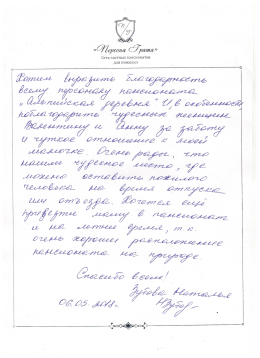 «Первая Грата»
Сеть частных пансионатов
для пожилых
Хотим выразить благодарность
всему персоналу пансионата
„Альпийская деревня“ И, в особенности
поблагодарить чудесных женщин
Валентину и Анну за заботу
и чуткое отношение к моей
мамочке. Очень рады, что
нашли чудесное место, где
можно оставить пожилого
человека на время отпуска
или отъезда. Хочется ещё
привезти маму в пансионат
и на летнее время, т.к.
очень хорошее расположение
пансионата на природе.
Спасибо всем!
Зубова Наталья
06.05.